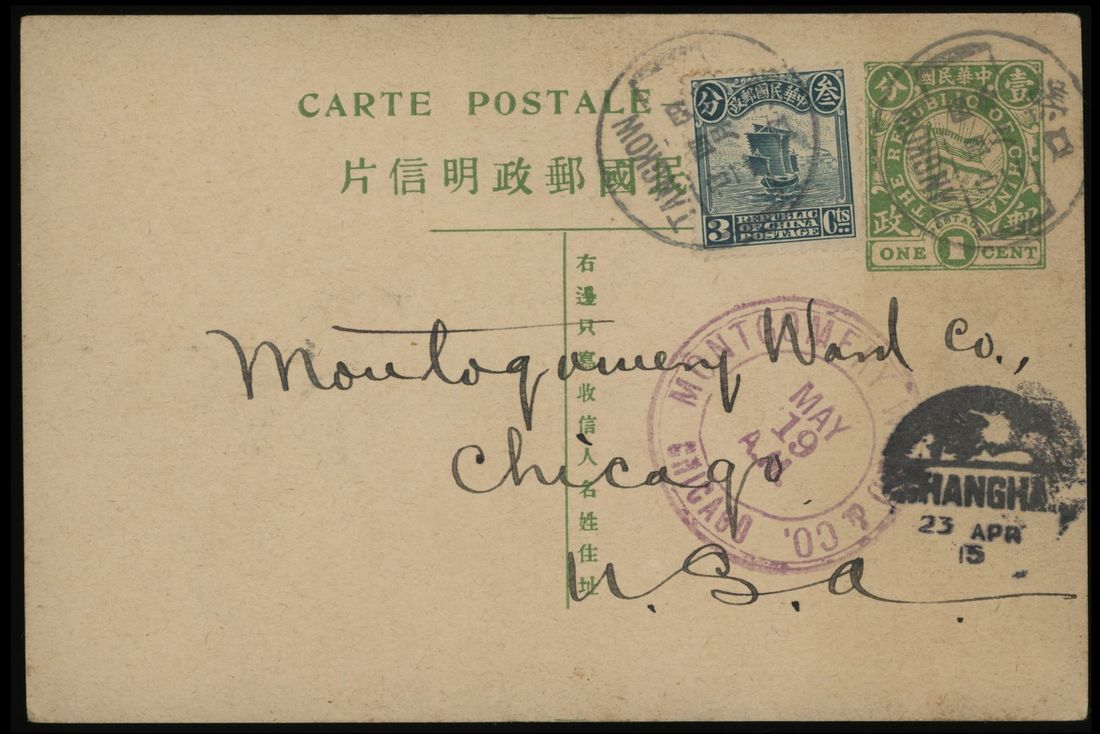 CARTE POSTALE
片信明政郵國民
TANGKOW
分 政郵國民華中 叁
3 REPUBLIC OF CHINA POSTAGE Cts
分 國民華中 壹
THE REPUBLIC OF CHINA
政 POSTAGE 郵
ONE 1 CENT
右邊只寫收信人名姓住址
Montogomery Ward Co.,
Chicago
U.S.a
MONTGOMERY
& CO. CHICAGO
MAY
19
A.M.
SHANGHA
23 APR
15